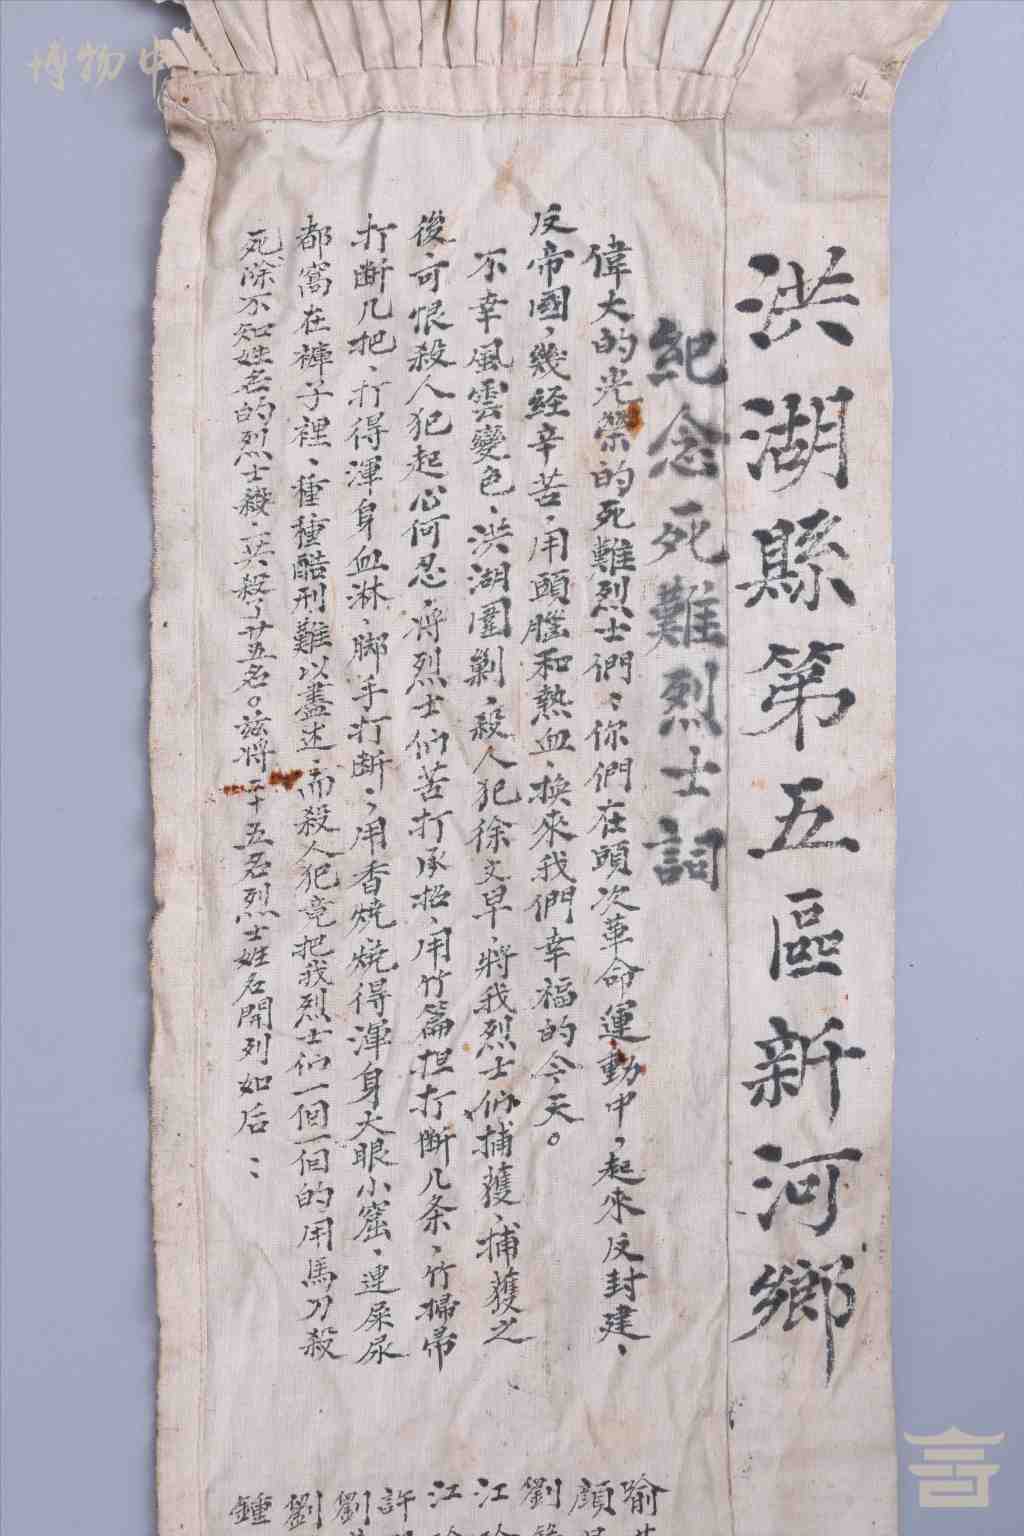 洪湖縣第五區新河鄉
紀念死難烈士詞
偉大的光榮的死難烈士們：你們在頭次革命運動中，起來反封建、
反帝國、幾经辛苦、用頭腦和熱血、換來我們幸福的今天。
不幸風雲變色、洪湖圍剿、殺人犯徐文早、將我烈士们捕獲、捕獲之
後可恨殺人犯起心何忍、将烈士们苦打承招、用竹篇担打断几条、竹掃帚
打断几把、打得渾身血淋、脚手打断、用香燒燒得渾身大眼小窟、連屎尿
都窩在褲子裡、種種酷刑難以盡述、而殺人犯竟把我烈士们一個一個的用馬刀殺
死、除不知姓名的烈士 共殺了廿五名。兹將二十五名烈士姓名開列如后：
喻
顔
劉
江
江
許
劉
劉
鍾
博物中